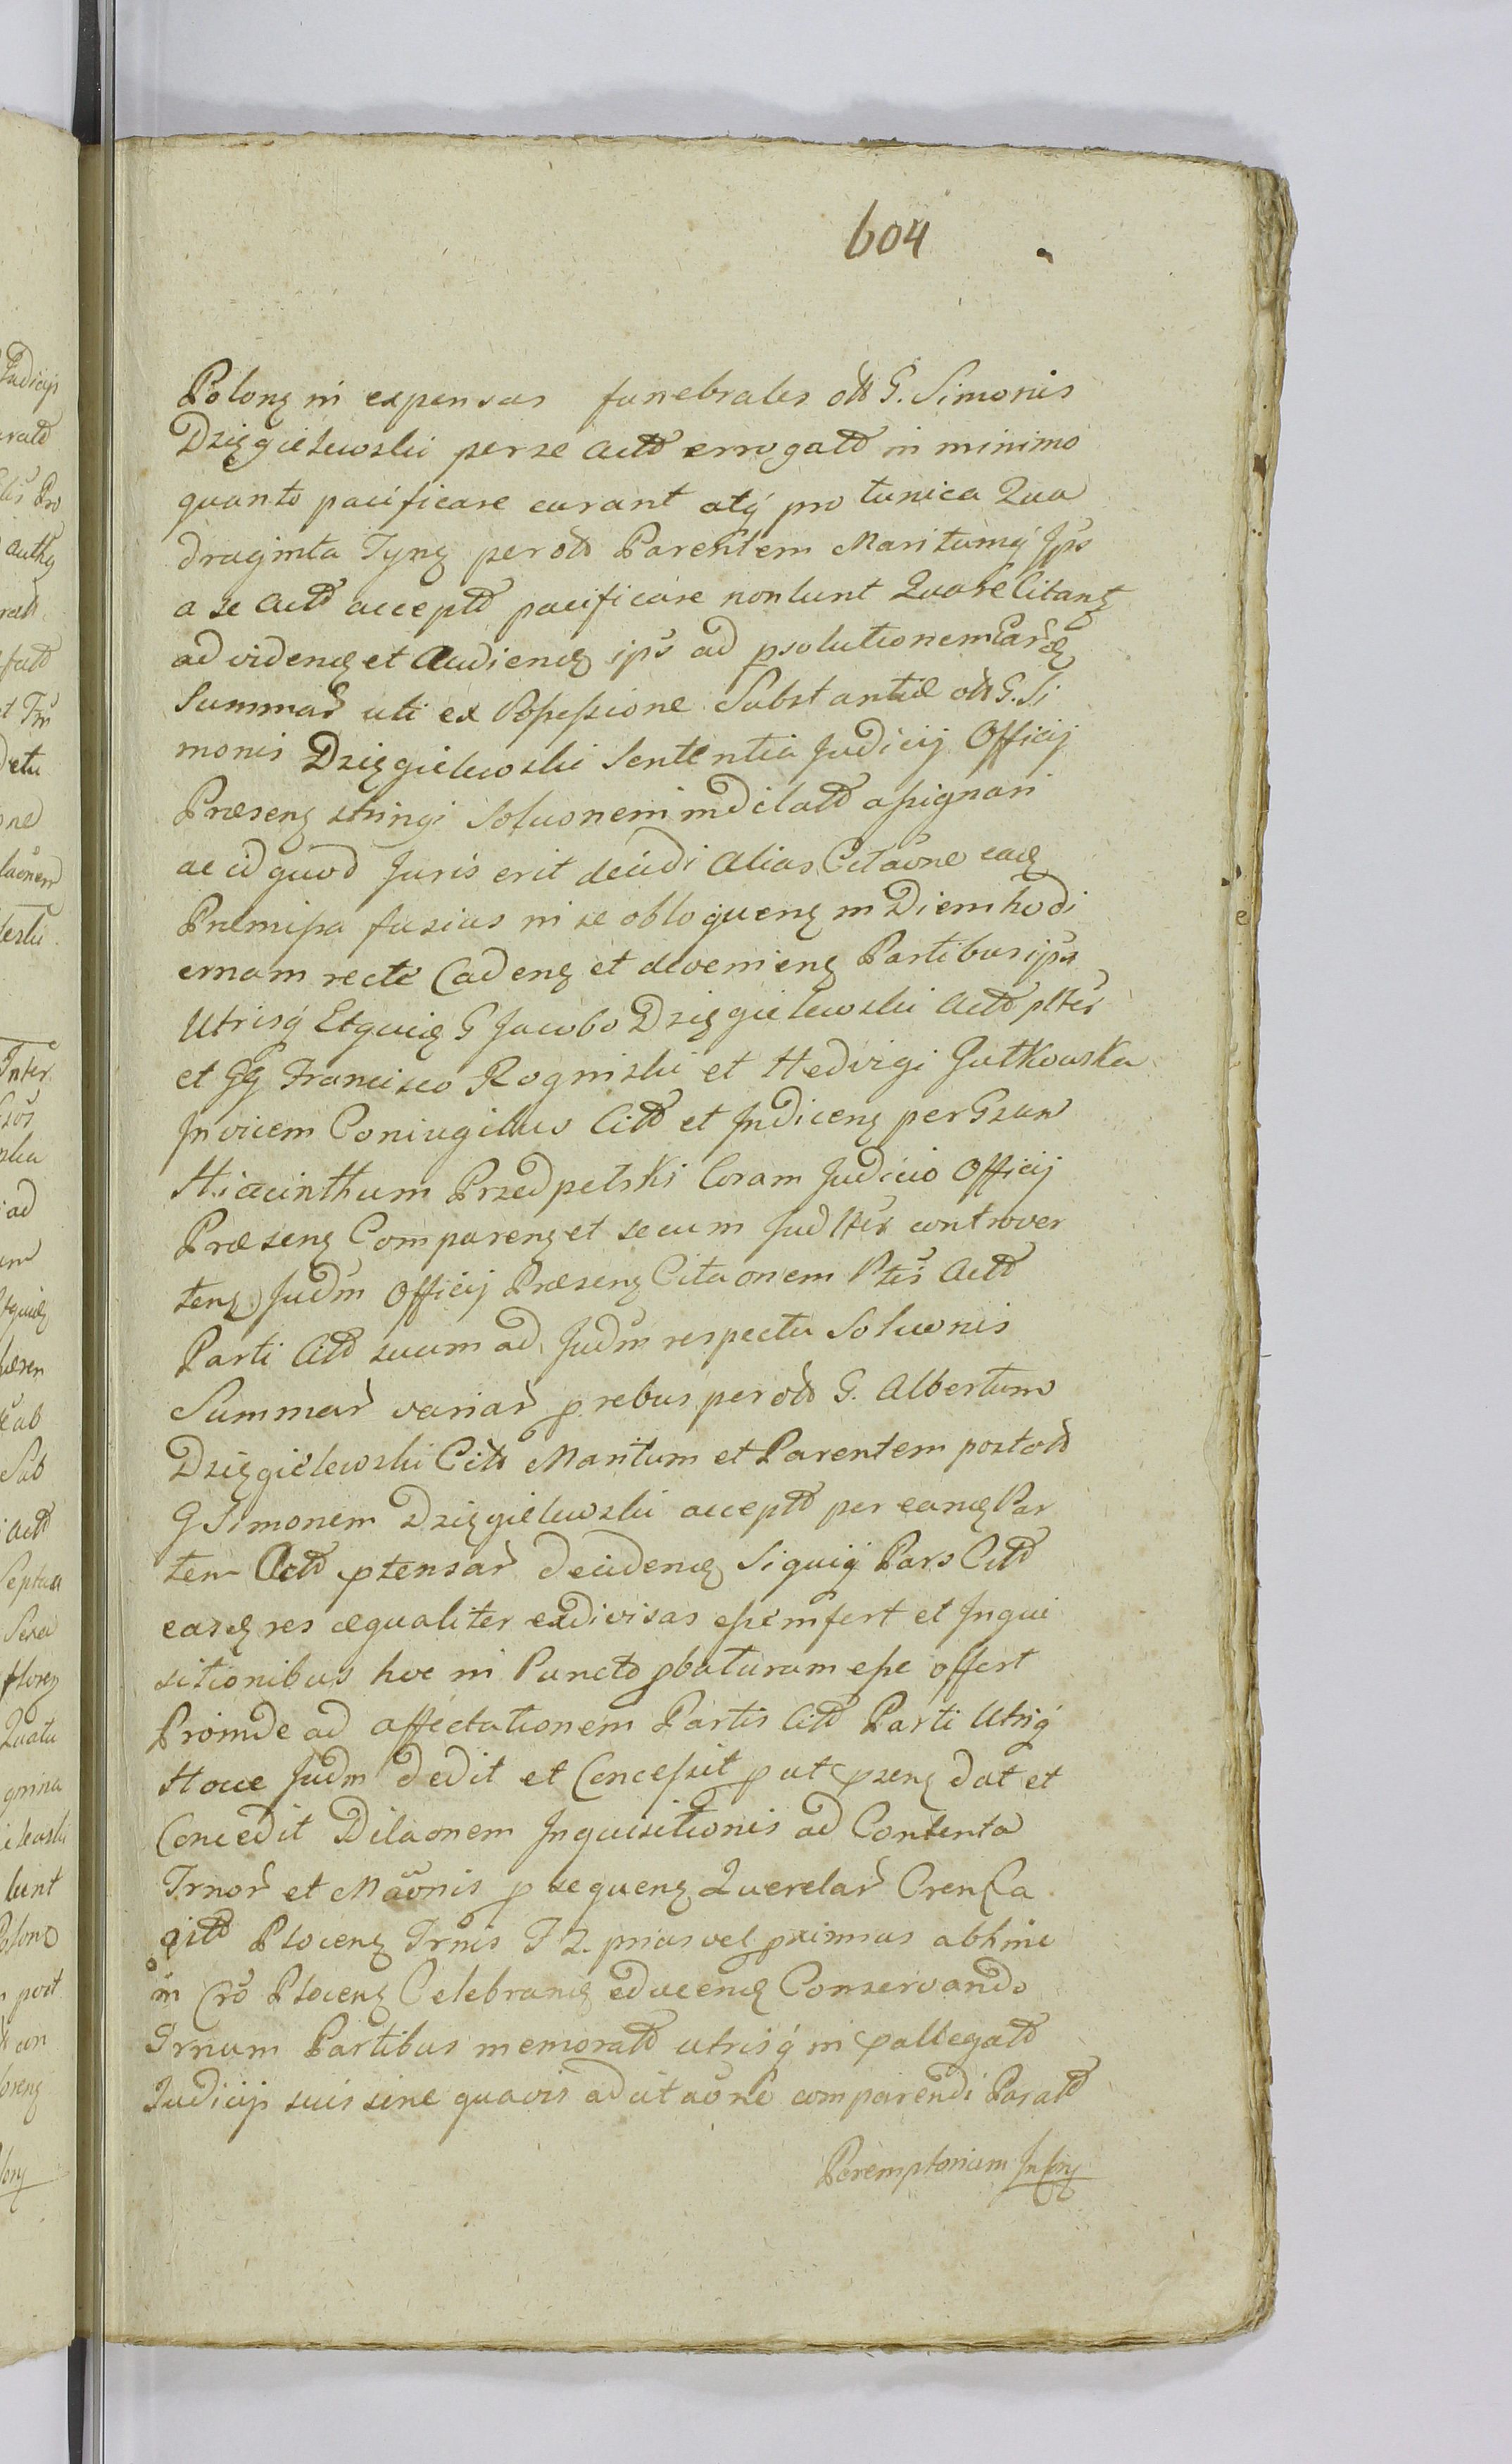 604
Polonz in expensas funebrales olt G. Simonis
Dzięgielewski per se actt errogatt in minimo
quanto pacificare curant atq pro tunica Qua
draginta Tynz per olt Parentem Maritumq Ips
a se actt acceptt pacificare nonlunt Quare Citantz
ad videndz et Audiendz ips ad psolutionem Eardz
Summar uti ex Possessione Substantiæ olt G. Si
monis Dzięgielewski Sententia Judicij Officij
Præsenz stringi Soluonem indilatt assignari
ac id quod Juris erit decidi alias Citaone eadz
Præmissa fusius in se obloquenz in Diem hodi
ernam recte Cadenz et devenienz Partibus ips
Utrisq Etquidz G Jacobo Dzięgielewski Actt plter
et GG Francisco Rogniski et Hedvigi Gutkowska
Invicem Coniugibus Citt et Indicenz per Gsum
Hiacinthum Przedpelski Coram Judicio Officij
Præsenz Comparenz et secum Judlter controver
tenz Judm Officij Præsenz Citaonem Ptis Actt
Parti Citt suum ad Judm respectu Soluonis
Summar variar p rebus per olt G. Albertum
Dzięgielewski Citt Maritum et Parentem post olt
G Simonem Dzięgielewski acceptt per eandz Par
tem Actt ptensar decidendz Siquid Pars Citt
easdz res æqualiter exdivisas esse infert et Inqui
sitionibus hoc in Puncto pbaturam esse offert
Proinde ad affectationem Partis Citt Parti Utriq
Hocce Judm dedit et Concessit p ut psenz dat et
Concedit Dilaonem Inquisitionis ad Contenta
Trnor et Maonis p sequenz Querelar Cren Ca
pitt Plocenz Trnis F 2. prias vel pximas abhinc
in Cro Plocenz Celebrandz educendz Conservando
Trnum Partibus memoratt utrisq in pallegatt
Judicijs suis sine quavis adcitaone comparendi Paratt
Peremptorium